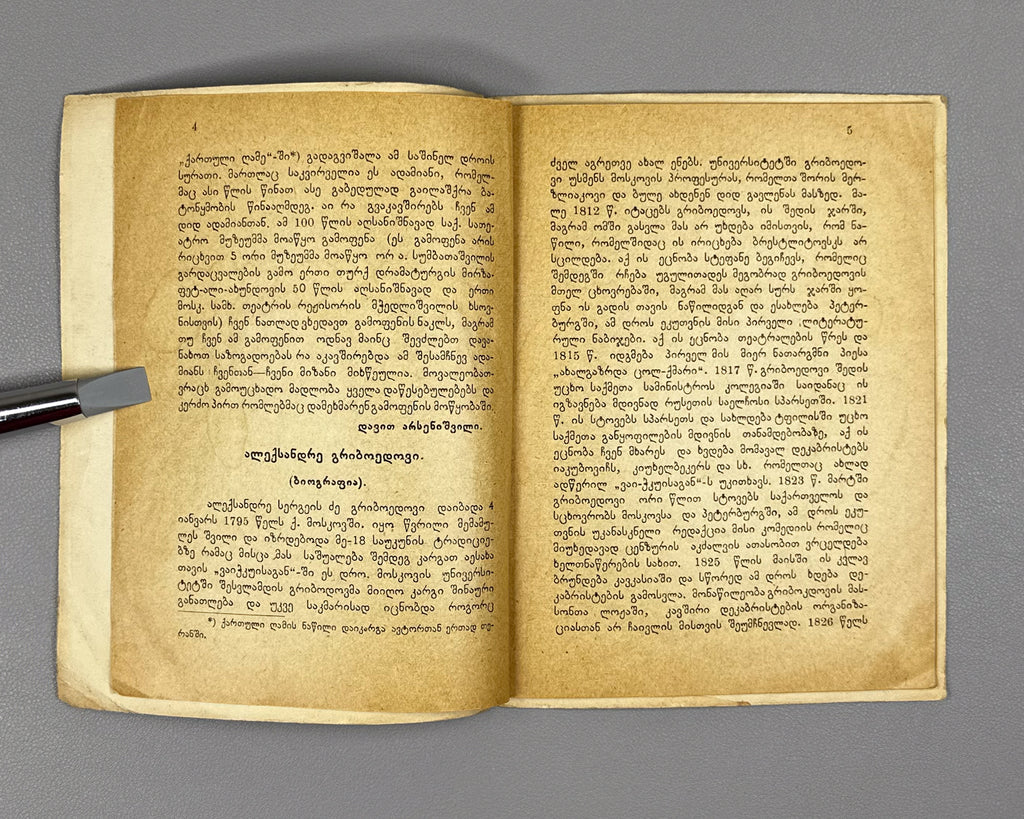 4
„ქართული ღამე“-ში*) გადაგვიშალა ამ საშინელ დროის
სურათი. მართლაც საკვირველია ეს ადამიანი, რომელ-
მაც ასი წლის წინათ ასე გაბედულად გაილაშქრა ბა-
ტონყმობის წინააღმდეგ. აი რა გვაკავშირებს ჩვენ ამ
დიდ ადამიანთან. ამ 100 წლის აღსანიშნავად საქ. სათე-
ატრო მუზეუმმა მოაწყო გამოფენა (ეს გამოფენა არის
რიცხვით 5 ორი მუზეუმმა მოაწყო ორ ა. სუმბათაშვილის
გარდაცვალების გამო ერთი თურქ დრამატურგის მირზა-
ფეტ-ალი-ახუნდოვის 50 წლის აღსანიშნავად და ერთი
მოსკ. სამხ. თეატრის რეჟისორის მჭედლიშვილის ხსოვ-
ნისთვის) ჩვენ ნათლად ვხედავთ გამოფენის ნაკლს, მაგრამ
თუ ჩვენ ამ გამოფენით ოდნავ მაინც შევძლებთ დავა-
ნახოთ საზოგადოებას რა აკავშირებდა ამ შესამჩნევ ადა-
მიანს ჩვენთან—ჩვენი მიზანი მიხწეულია. მოვალეობათ-
ვრაცხ გამოუცხადო მადლობა ყველა დაწესებულებებს და
კერძო პირთ რომლებმაც დამეხმარენ გამოფენის მოწყობაში.
დავით არსენიშვილი.
ალექსანდრე გრიბოედოვი.
(ბიოგრაფია).
ალექსანდრე სერგეის ძე გრიბოედოვი დაიბადა 4
იანვარს 1795 წელს ქ. მოსკოვში. იყო წვრილი მემამუ-
ლეს შვილი და იზრდებოდა მე-18 საუკუნის ტრადიციე-
ბზე რამაც მისცა მას საშუალება შემდეგ კარგათ აესახა
თავის „ვაიჭკუისაგან“-ში ეს დრო. მოსკოვის უნივერსი-
ტეტში შესვლამდის გრიბოდოვმა მიიღო კარგი შინაური
განათლება და უკვე საკმარისად იცნობდა როგორც
*) ქართული ღამის ნაწილი დაიკარგა ავტორთან ერთად თე-
რანში.
5
ძველ აგრეთვე ახალ ენებს. უნივერსიტეტში გრიბოედო-
ვი უსმენს მოსკოვის პროფესურას, რომელთა შორის მერ-
ზლიაკოვი და ბულე ახდენენ დიდ გავლენას მასზედ. მა-
ლე 1812 წ. იტაცებს გრიბოედოვს, ის შედის ჯარში,
მაგრამ ომში გასვლა მას არ უხდება იმისთვის, რომ ნა-
წილი, რომელშიდაც ის ირიცხება ბრესტლიტოვსკს არ
სცილდება. აქ ის ეცნობა სტეფანე ბეგიჩევს, რომელიც
შემდეგში რჩება უგულითადეს მეგობრად გრიბოედოვის
მთელ ცხოვრებაში, მაგრამ მას აღარ სურს ჯარში ყო-
ფნა ის გადის თავის ნაწილიდგან და ესახლება პეტერ-
ბურგში, ამ დროს ეკუთვნის მისი პირველი ლიტერატუ-
რული ნაბიჯები. აქ ის ეცნობა თეატრალების წრეს და
1815 წ. იდგმება პირველ მის მიერ ნათარგმნი პიესა
„ახალგაზრდა ცოლ-ქმარი“. 1817 წ. გრიბოედოვი შედის
უცხო საქმეთა სამინისტროს კოლეგიაში საიდანაც ის
იგზავნება მდივნად რუსეთის საელჩოსი სპარსეთში. 1821
წ. ის სტოვებს სპარსეთს და სახლდება ტფილისში უცხო
საქმეთა განყოფილების მდივნის თანამდებობაზე, აქ ის
ეცნობა ჩვენ მხარეს და ხვდება მომავალ დეკაბრისტებს
იაკუბოვიჩს, კიუხელბეკერს და სხ. რომელთაც ახლად
ადწერილ „ვაი-ჭკუისაგან“-ს უკითხავს. 1823 წ. მარტში
გრიბოედოვი ორი წლით სტოვებს საქართველოს და
სცხოვრობს მოსკოვსა და პეტერბურგში, ამ დროს ეკუ-
თვნის უკანასკნელი რედაქცია მისი კომედიის რომელიც
მიუხედავად ცენზურის აკძალვის ათასობით ვრცელდება
ხელთნაწერების სახით. 1825 წლის მაისში ის კვლავ
ბრუნდება კავკასიაში და სწორედ ამ დროს ხდება დე-
კაბრისტების გამოსვლა. მონაწილეობა გრიბოკდოვის მას-
სონთა ლოჟაში, კავშირი დეკაბრისტების ორგანიზა-
ციასთან არ ჩაივლის მისთვის შეუმჩნევლად. 1826 წელს